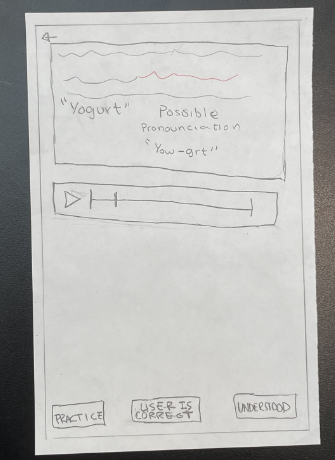 "Yogurt"
Possible
Pronounciation
"Yow-grt"
PRACTICE
USER IS
CORRECT
UNDERSTOOD